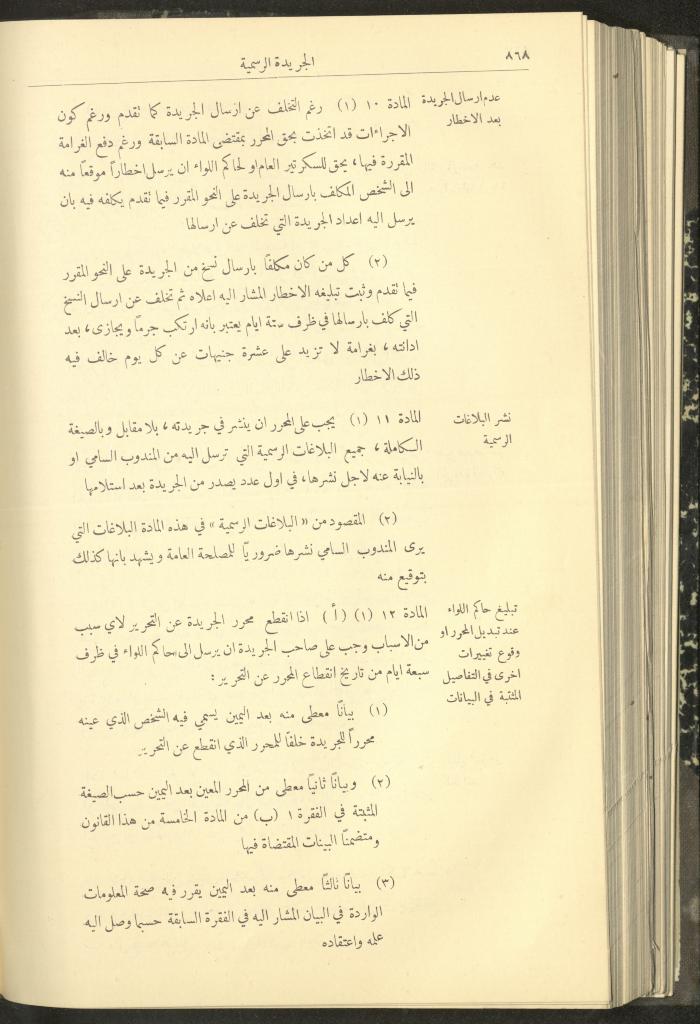 ٨٦٨
الجريدة الرسمية
عدم ارسال الجريدة
بعد الاخطار
المادة ١٠ (١) رغم التخلف عن ارسال الجريدة كما تقدم ورغم كون
الاجراءات قد اتخذت بحق المحرر بمقتضى المادة السابقة ورغم دفع الغرامة
المقررة فيها، يحق للسكرتير العام او لحاكم اللواء ان يرسل اخطاراً موقعاً منه
الى الشخص المكلف بارسال الجريدة على النحو المقرر فيما تقدم يكلفه فيه بان
يرسل اليه اعداد الجريدة التي تخلف عن ارسالها
(٢) كل من كان مكلفاً بارسال نسخ من الجريدة على النحو المقرر
فيما تقدم وثبت تبليغه الاخطار المشار اليه اعلاه ثم تخلف عن ارسال النسخ
التي كلف بارسالها في ظرف ستة ايام يعتبر بانه ارتكب جرماً ويجازى، بعد
ادانته، بغرامة لا تزيد على عشرة جنيهات عن كل يوم خالف فيه
ذلك الاخطار
نشر البلاغات
الرسمية
المادة ١١ (١) يجب على المحرر ان ينشر في جريدته، بلا مقابل وبالصيغة
الكاملة، جميع البلاغات الرسمية التي ترسل اليه من المندوب السامي او
بالنيابة عنه لاجل نشرها، في اول عدد يصدر من الجريدة بعد استلامها
(٢) المقصود من «البلاغات الرسمية» في هذه المادة البلاغات التي
يرى المندوب السامي نشرها ضرورياً للمصلحة العامة ويشهد بانها كذلك
بتوقيع منه
تبليغ حاكم اللواء
عند تبديل المحرر او
وقوع تغييرات
اخرى في التفاصيل
المثبتة في البيانات
المادة ١٢ (١) (أ) اذا انقطع محرر الجريدة عن التحرير لاي سبب
من الاسباب وجب على صاحب الجريدة ان يرسل الى حاكم اللواء في ظرف
سبعة ايام من تاريخ انقطاع المحرر عن التحرير:
(١) بياناً معطى منه بعد اليمين يسمي فيه الشخص الذي عينه
محرراً للجريدة خلفاً للمحرر الذي انقطع عن التحرير
(٢) وبياناً ثانياً معطى من المحرر المعين بعد اليمين حسب الصيغة
المثبتة في الفقرة ١ (ب) من المادة الخامسة من هذا القانون
ومتضمناً البينات المقتضاة فيها
(٣) بياناً ثالثاً معطى منه بعد اليمين يقرر فيه صحة المعلومات
الواردة في البيان المشار اليه في الفقرة السابقة حسبما وصل اليه
علمه واعتقاده